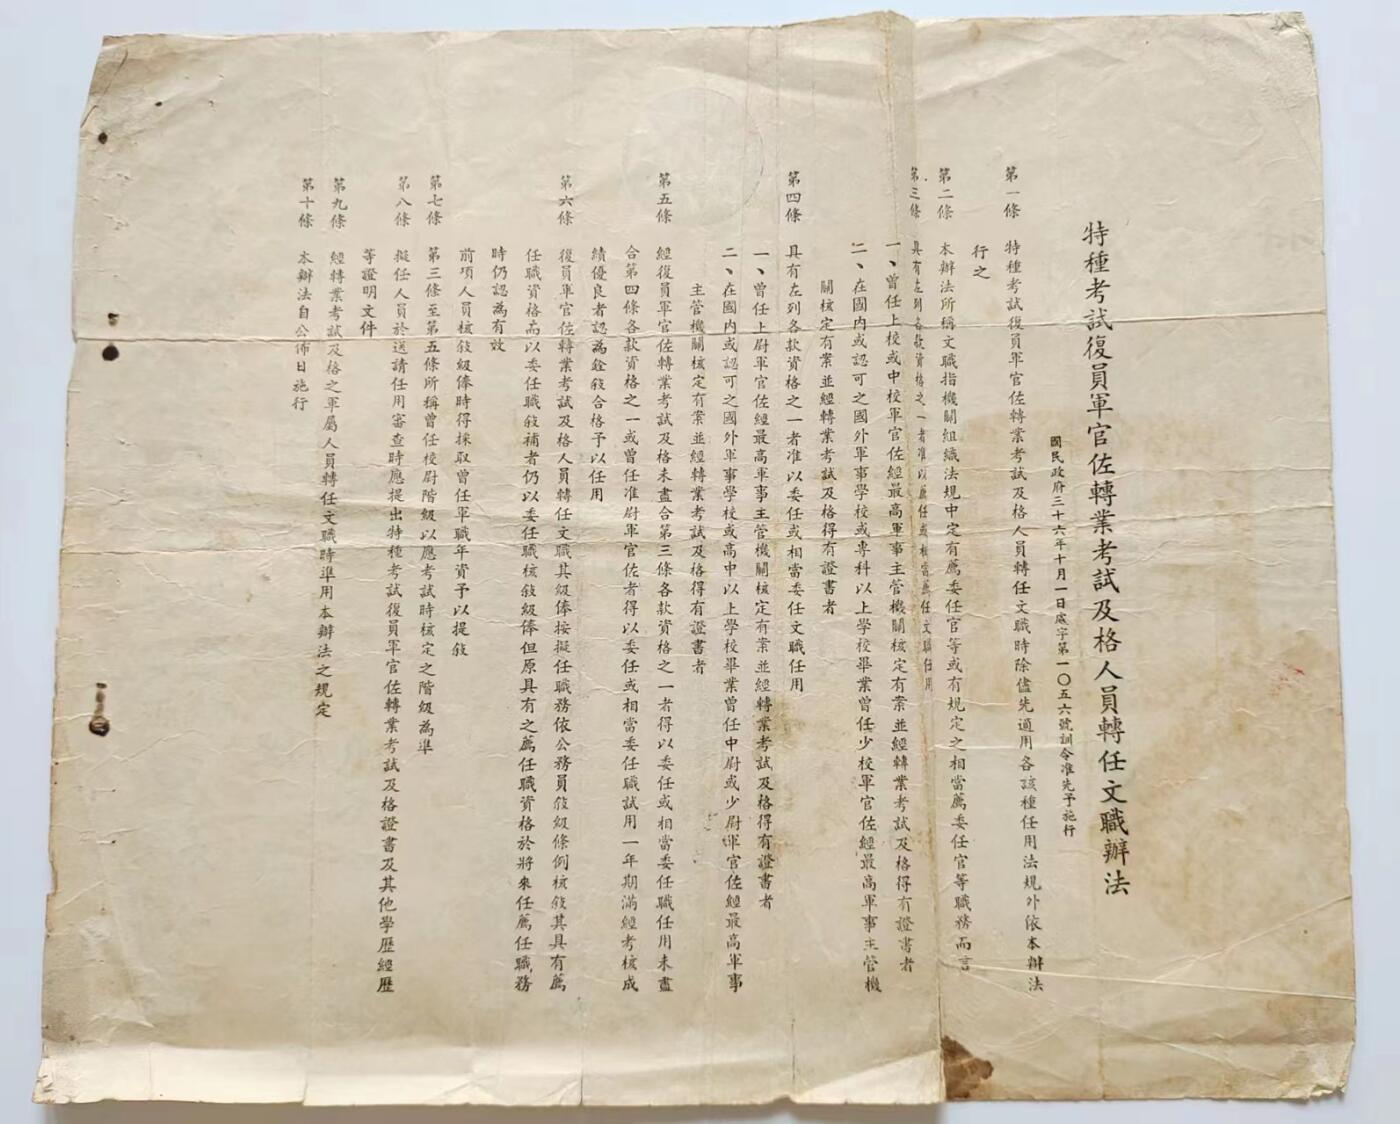 特種考試復員軍官佐轉業考試及格人員轉任文職辦法
國民政府三十六年十月一日處字第一〇五六號訓令准先予施行
第一條 特種考試復員軍官佐轉業考試及格人員轉任文職時除儘先適用各該種任用法規外依本辦法
行之
第二條 本辦法所稱文職指機關組織法規中定有薦委任官等或有規定之相當薦委任官等職務而言
第三條 具有左列各款資格之一者准以薦任或相當薦任文職任用
一、曾任上校或中校軍官佐經最高軍事主管機關核定有案並經轉業考試及格得有證書者
二、在國內或認可之國外軍事學校或專科以上學校畢業曾任少校軍官佐經最高軍事主管機
關核定有案並經轉業考試及格得有證書者
第四條 具有左列各款資格之一者准以委任或相當委任文職任用
一、曾任上尉軍官佐經最高軍事主管機關核定有案並經轉業考試及格得有證書者
二、在國內或認可之國外軍事學校或高中以上學校畢業曾任中尉或少尉軍官佐經最高軍事
主管機關核定有案並經轉業考試及格得有證書者
第五條 經復員軍官佐轉業考試及格未盡合第三條各款資格之一者得以委任或相當委任職任用未盡
合第四條各款資格之一或曾任准尉軍官佐者得以委任或相當委任職試用一年期滿經考核成
績優良者認為銓敘合格予以任用
第六條 復員軍官佐轉業考試及格人員轉任文職其級俸按擬任職務依公務員敘級條例核敘其具有薦
任職資格而以委任職敘補者仍以委任職核敘級俸但原具有之薦任職資格於將來任薦任職務
時仍認為有效
前項人員核敘級俸時得採取曾任軍職年資予以提敘
第七條 第三條至第五條所稱曾任校尉階級以應考試時核定之階級為準
第八條 擬任人員於送請任用審查時應提出特種考試復員軍官佐轉業考試及格證書及其他學歷經歷
等證明文件
第九條 經轉業考試及格之軍屬人員轉任文職時準用本辦法之規定
第十條 本辦法自公佈日施行